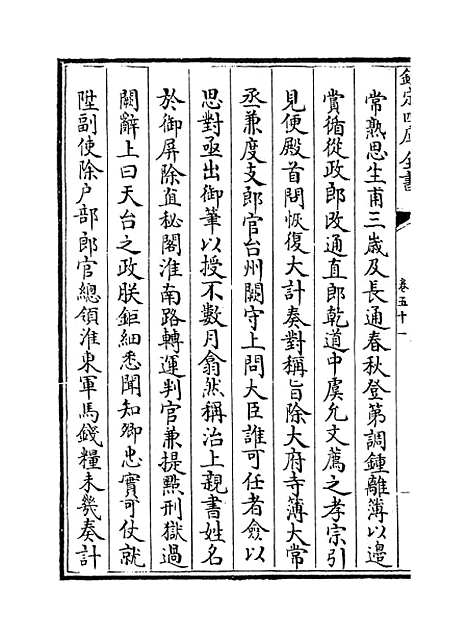 欽定四庫全書
卷五十一
常熟思生甫三歳及長通春秋登第調鍾離簿以邉
賞循從政郎改通直郎乾道中虞允文薦之孝宗引
見便殿首問恢復大計奏對稱旨除大府寺簿大常
丞兼度支郎官台州闕守上問大臣誰可任者僉以
思對亟出御筆以授不數月翕然稱治上親書姓名
於御屏除直秘閣淮南路轉運判官兼提㸃刑獄過
闕辭上曰天台之政朕鉅細悉聞知卿忠實可仗就
陞副使除户部郎官總領淮東軍馬錢糧未㡬奏計